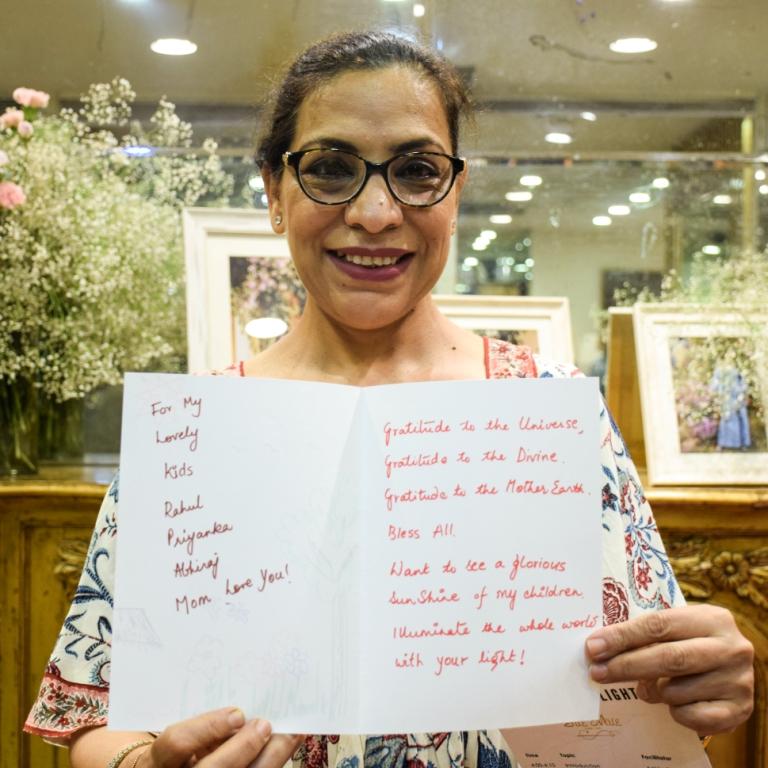 For My
Lovely
Kids
Rahul
Priyanka
Abhiraj
Mom Love You!
Gratitude to the Universe,
Gratitude to the Divine.
Gratitude to the Mother Earth.
Bless All.
Want to see a glorious
Sun Shine of my children.
Illuminate the whole world
with your light!
LIGHT
Time Topic Facilitator
Introduction